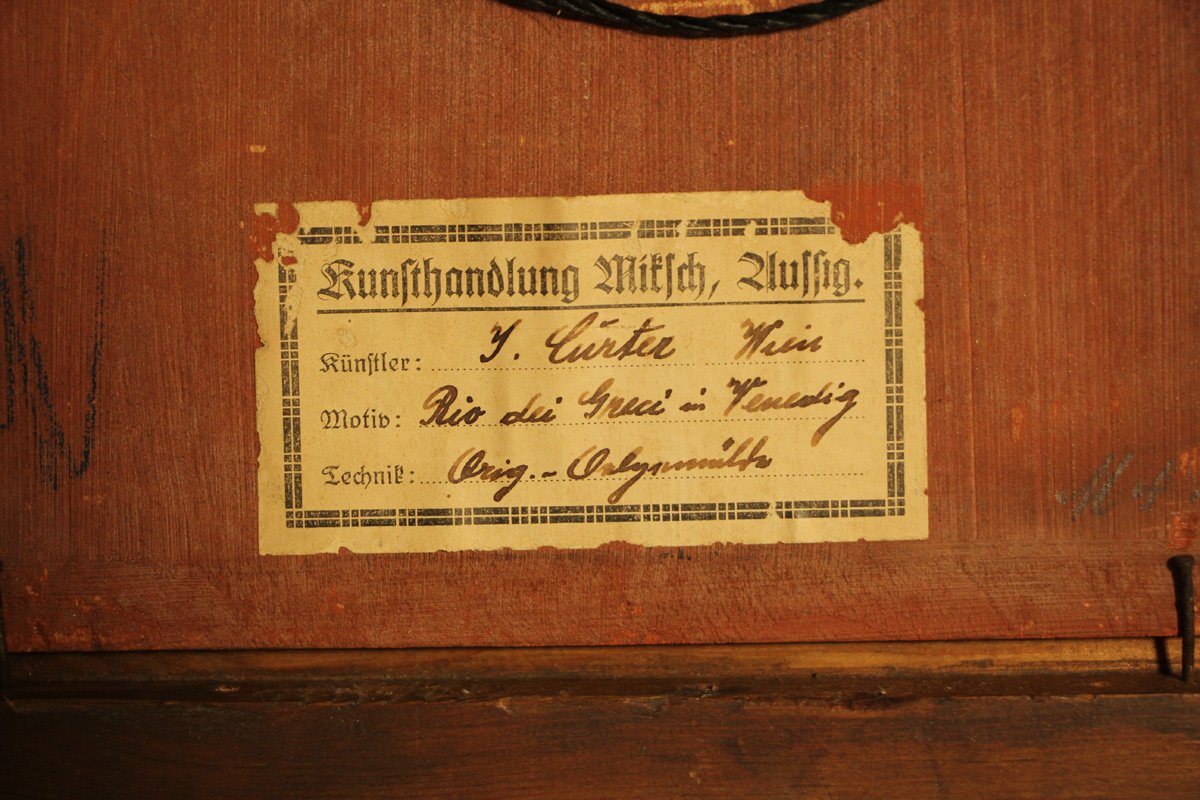 Kunsthandlung Miksch, Aussig.
Künstler: J. Cürter Wien
Motiv: Rio dei Greci in Venedig
Technik: Orig.-Oelgemälde